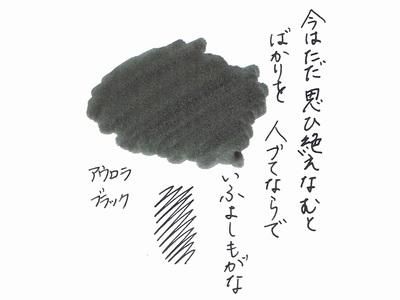 今はただ 思ひ絶えなむと
ばかりを 人づてならで
いふよしもがな
アウロラ
ブラック